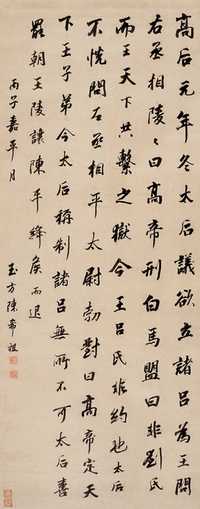 高后元年冬太后議欲立諸呂為王問
右丞相陵陵曰高帝刑白馬盟曰非劉氏
而王天下共擊之獄今王呂氏非約也太后
不悅問右丞相平太尉勃對曰高帝定天
下王子弟今太后稱制諸呂無所不可太后喜
罷朝王陵讓陳平絳侯而退
丙子嘉平月
玉方陳希祖